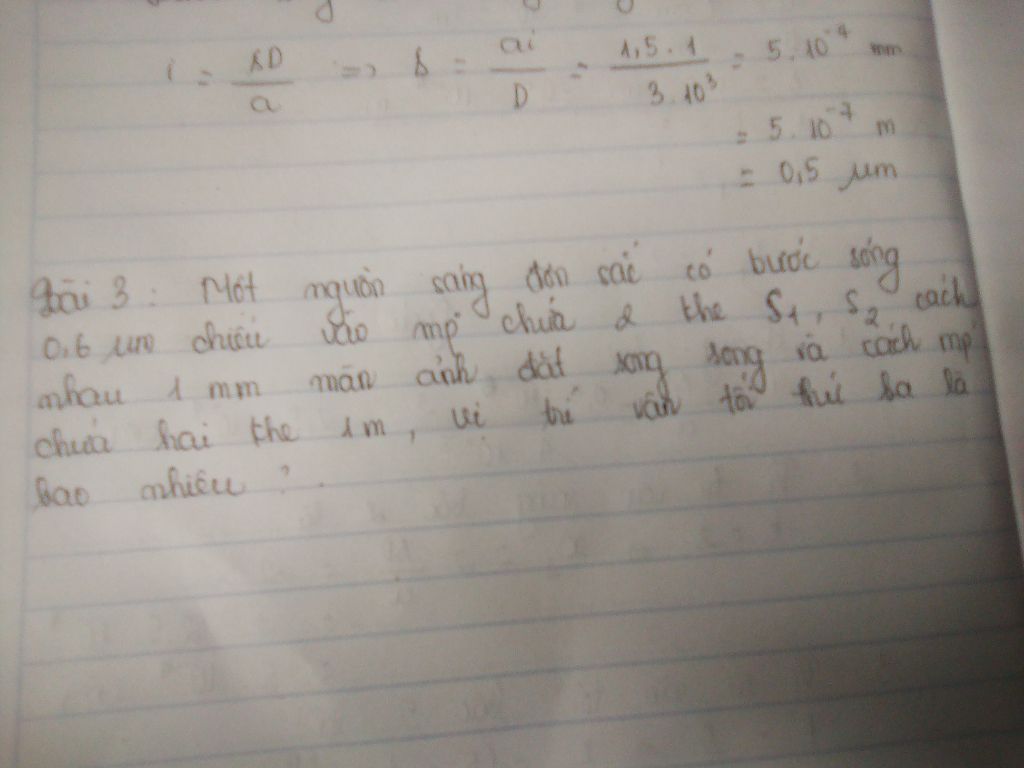 i = λD/a => λ = ai/D = 1,5.1/3.10³ = 5.10⁻⁴ mm
= 5.10⁻⁷ m
= 0,5 µm
Bài 3 : Một nguồn sáng đơn sắc có bước sóng
0,6 µm chiếu vào mp chứa 2 khe S₁, S₂ cách
nhau 1 mm màn ảnh đặt song song và cách mp
chứa hai khe 1m, vị trí vân tối thứ ba là
bao nhiêu ? .